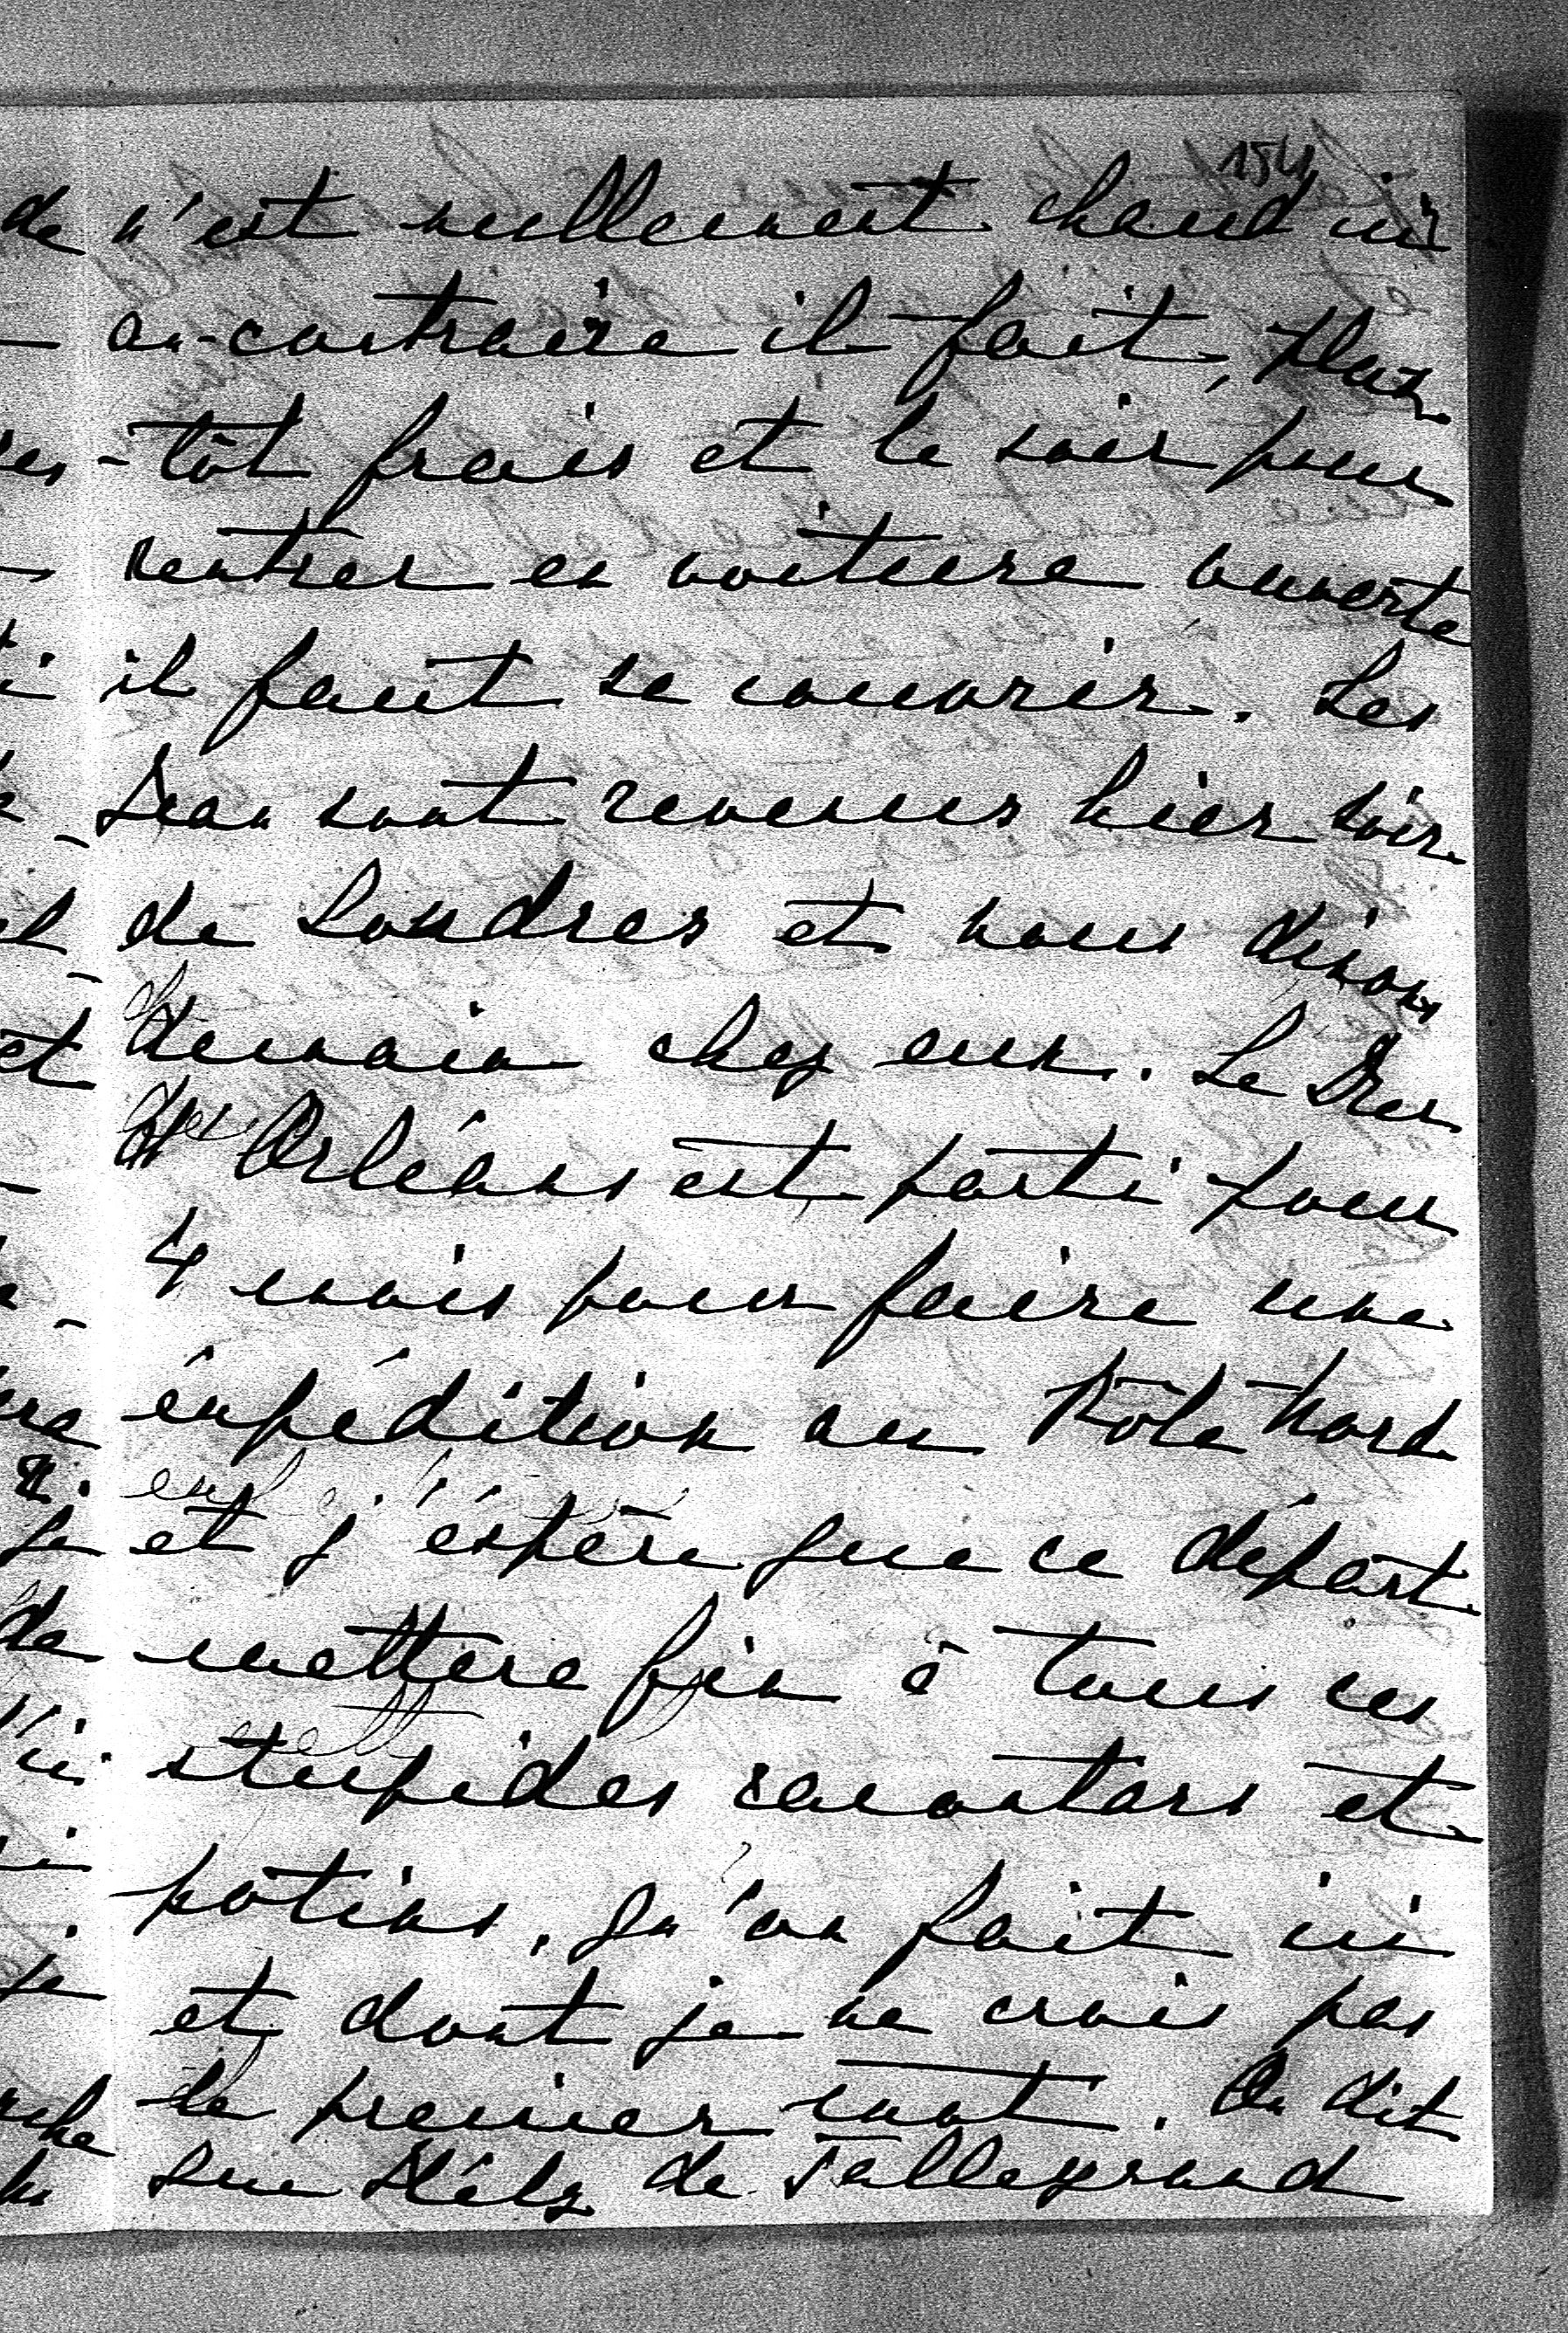 154
n'est nullement chaud ici
au-contraire il fait, plus
-tôt frais et le soir pour
rentrer en voiture ouverte
il faut se couvrir. Les
Jean sont revenus hier soir
de Londres et nous dinons
demain chez eux. Le Duc
d'Orléans est parti pour
4 mois pour faire une
éxpédition au Pôle Nord
et j'éspère que ce départ
mettera fin à tous ces
stupides racontars et
potins, qu'on fait ici
et dont je ne crois pas
le premier mot. On dit
que Hély de Talleyrand